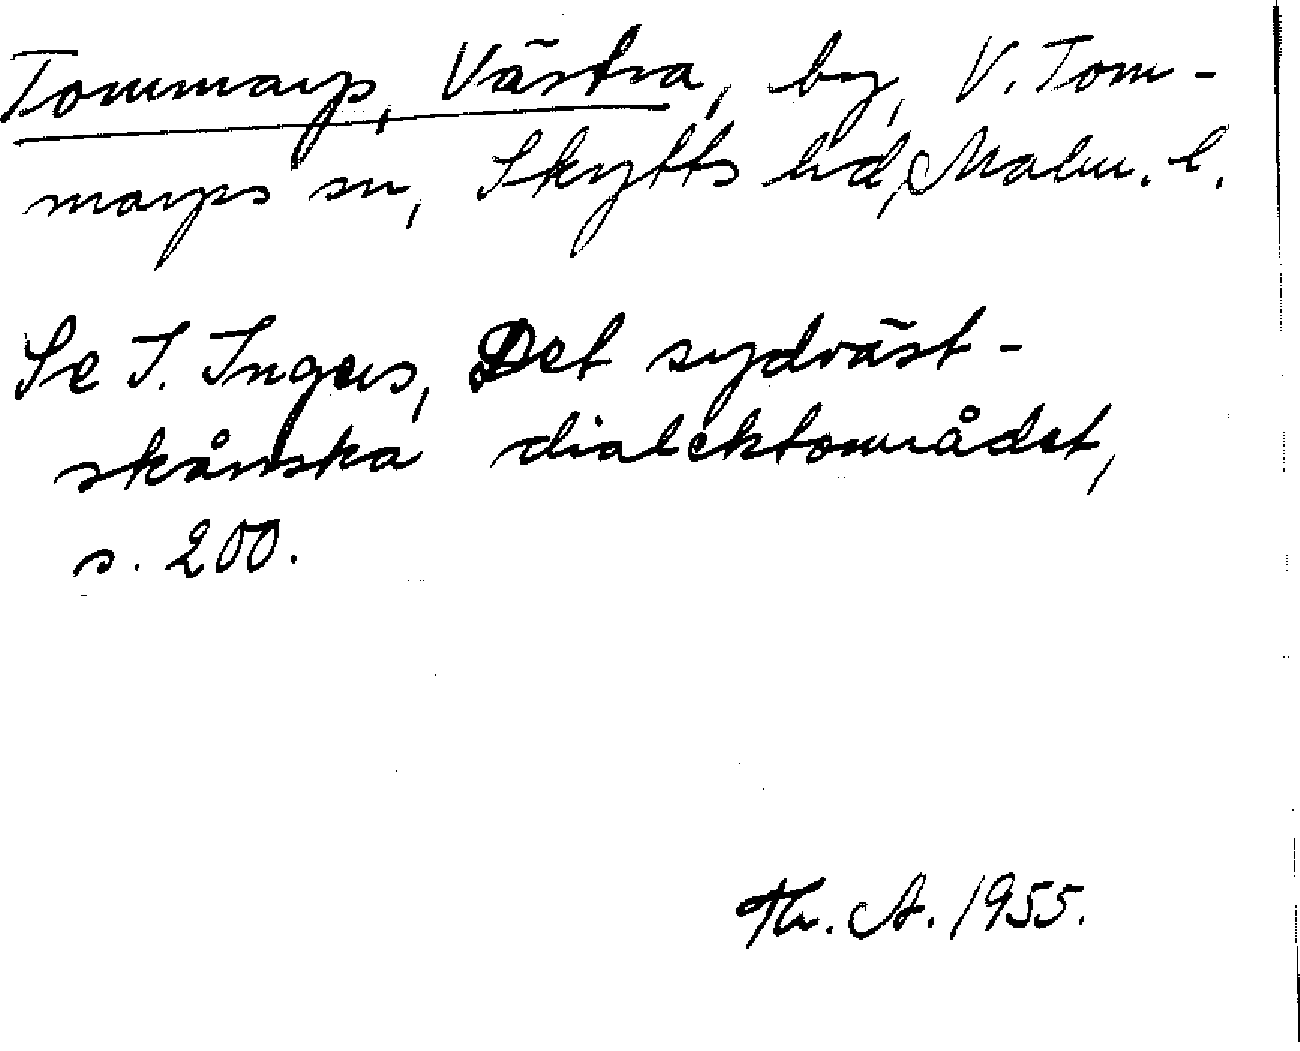 Tommarp, Västra, by, V. Tom-
marps sn, Skytts hd, Malm. l.
Se I. Ingers, Det sydväst-
skånska dialektområdet,
s. 200.
Th. A. 1955.